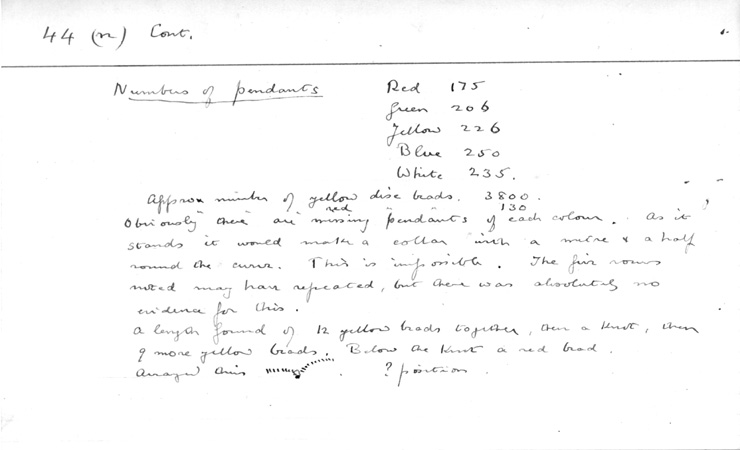 44 (n) Cont.
Numbers of pendants Red 175
Green 206
Yellow 226
Blue 250
White 235.
Approx number of yellow disc beads. 3800.
red 130
Obviously there are missing pendants of each colour. As it
stands it would make a collar with a metre & a half
round the curve. This is impossible. The five rows
noted may have repeated, but there was absolutely no
evidence for this.
A length found of 12 yellow beads together, then a knot, then
9 more yellow beads. Below the knot a red bead.
Arranged thus . ? position .